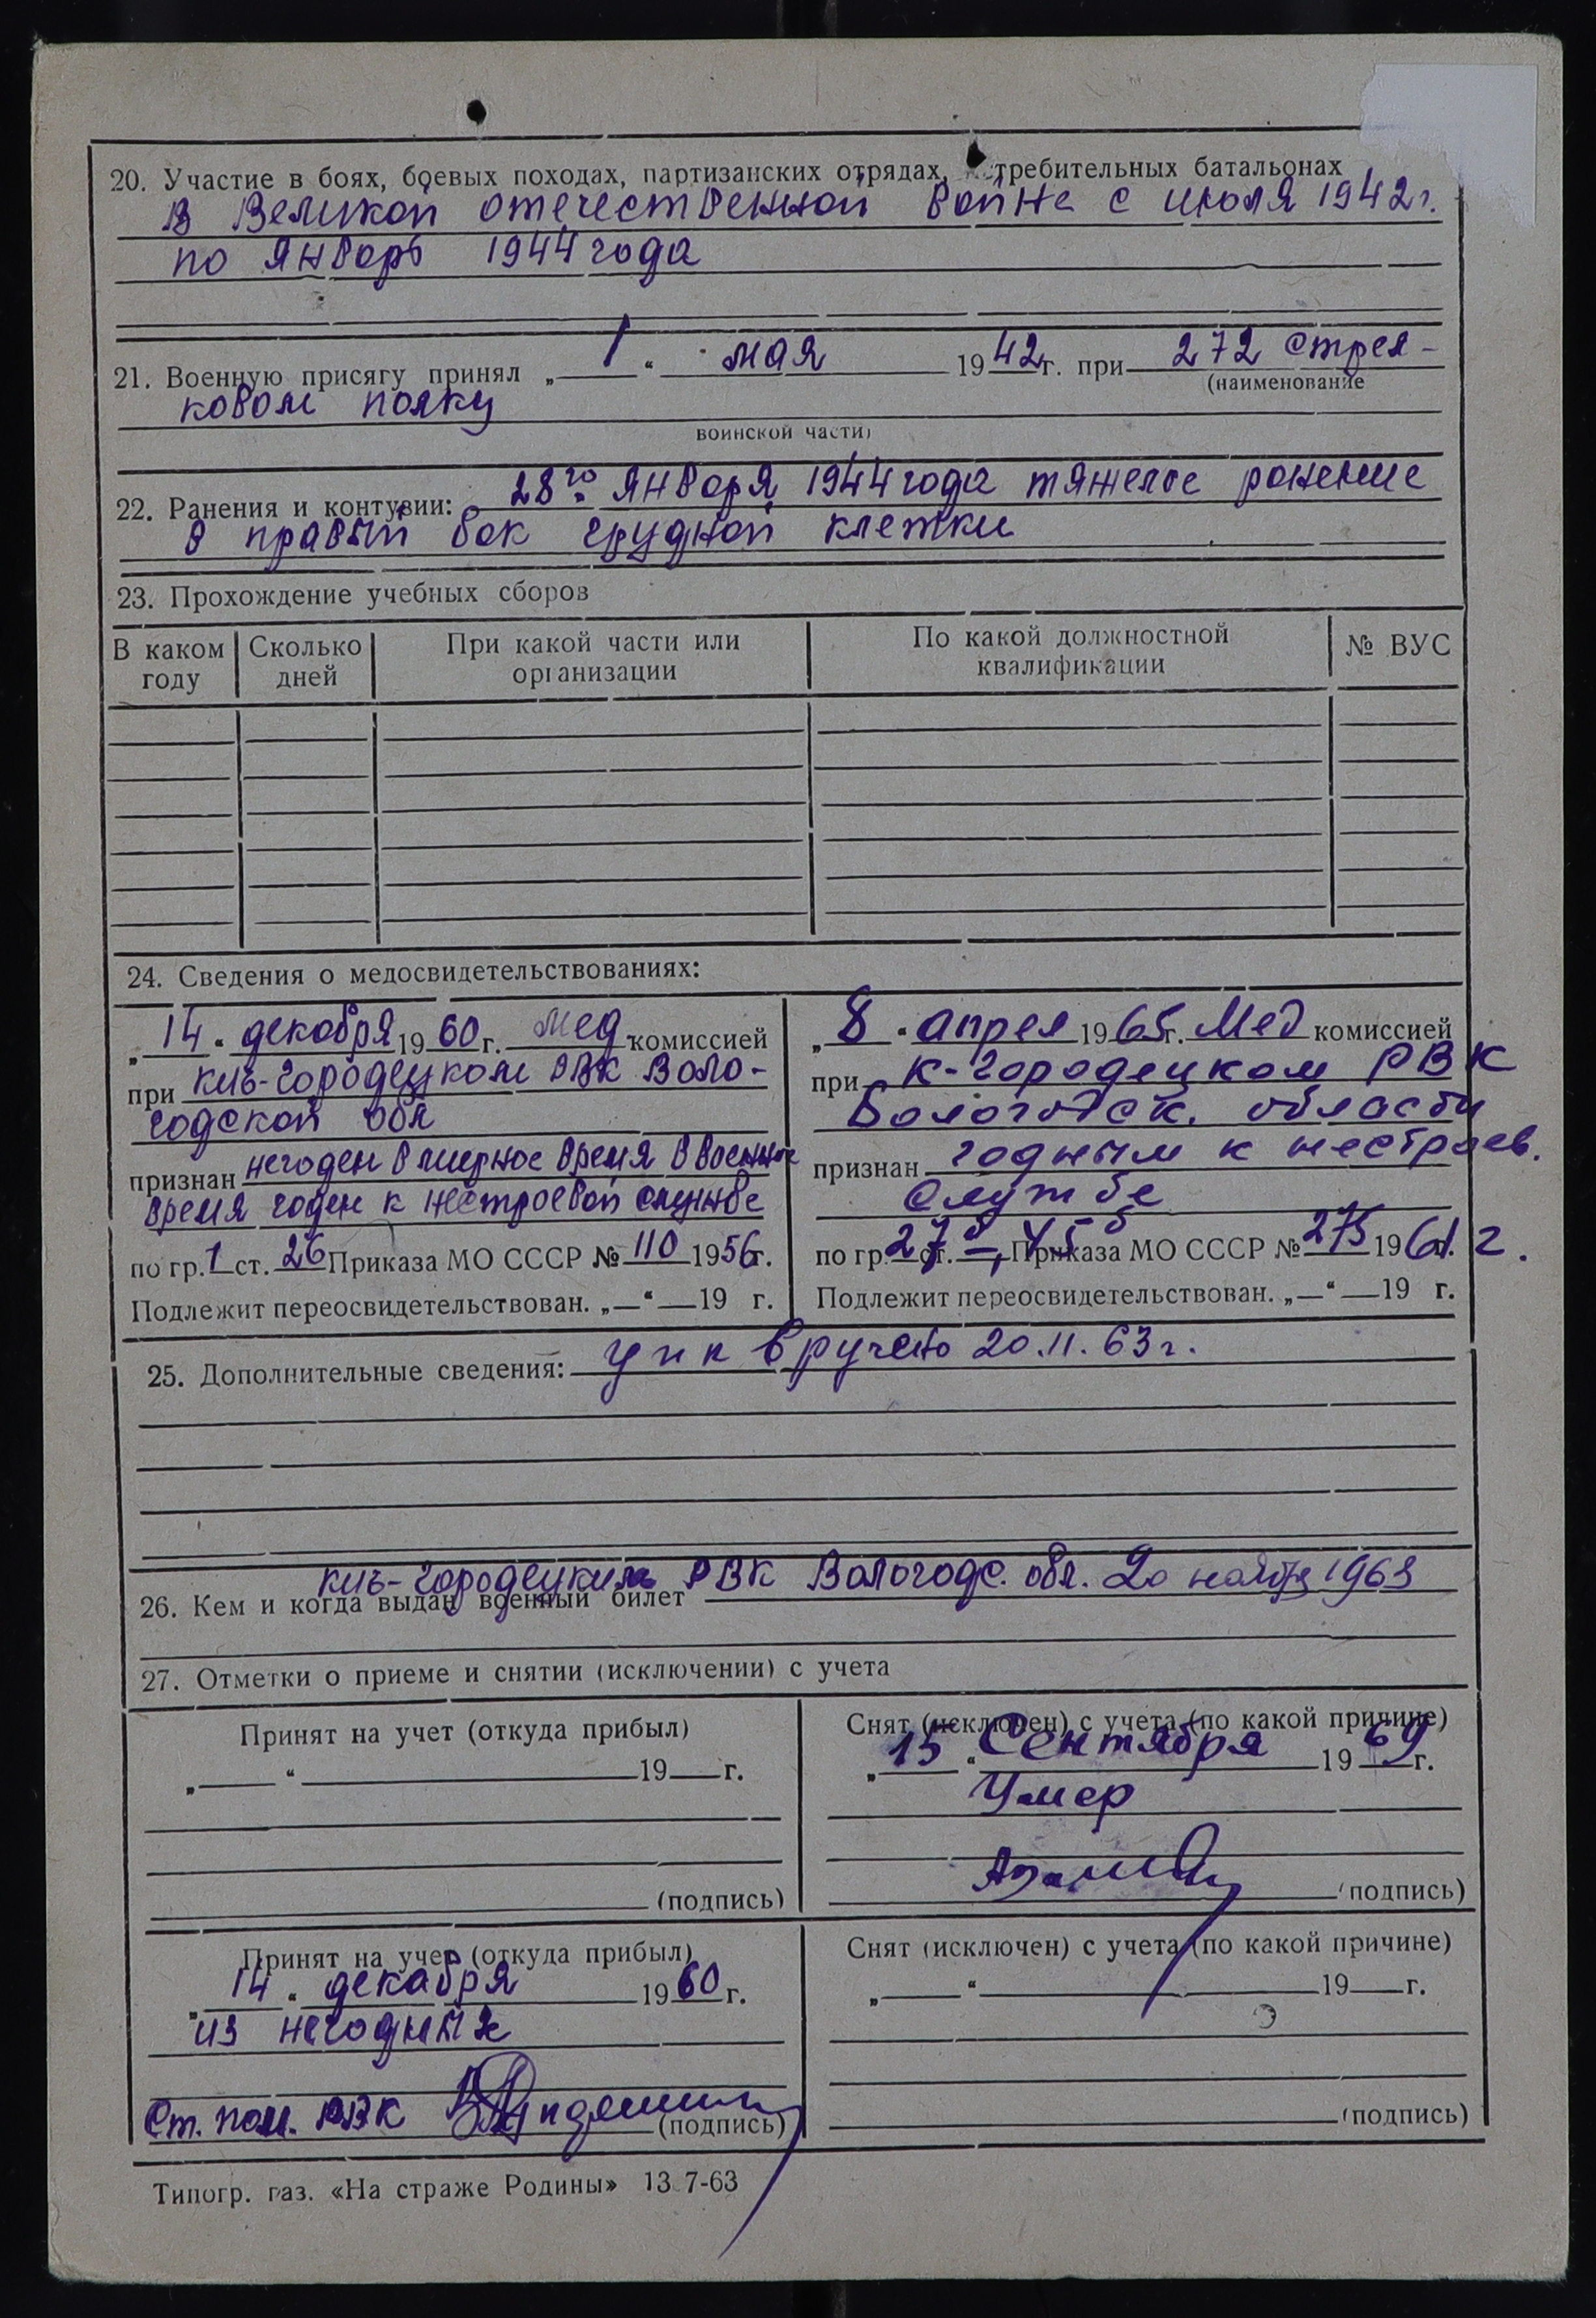 20. Участие в боях, боевых походах, партизанских отрядах, истребительных батальонах
В Великой отечественной войне с июля 1942 г.
по январь 1944 года
21. Военную присягу принял „1“ мая 1942 г. при 272 стрел-
(наименование
ковом полку
воинской части)
22. Ранения и контузии: 28го января 1944 года тяжелое ранение
в правый бок грудной клетки
23. Прохождение учебных сборов
В каком году | Сколько дней | При какой части или организации | По какой должностной квалификации | № ВУС
24. Сведения о медосвидетельствованиях:
„14“ декабря 1960 г. Мед комиссией
при Кич-Городецком РВК Воло-
годской обл
признан негоден в мирное время в военное
время годен к нестроевой службе
по гр. 1 ст. 26 Приказа МО СССР № 110 1956 г.
Подлежит переосвидетельствован. „—“ — 19 г.
„8“ апрел 1965 г. Мед комиссией
при К-Городецком РВК
Вологодск. области
признан годным к нестроев.
службе
по гр. ст. Приказа МО СССР № 275 1961 г.
Подлежит переосвидетельствован. „—“ — 19 г.
25. Дополнительные сведения: вручено 20.11.63 г.
Кич-Городецким РВК Вологодс. обл. 20 ноября 1963
26. Кем и когда выдан военный билет
27. Отметки о приеме и снятии (исключении) с учета
Принят на учет (откуда прибыл)
„ “ 19 г.
(подпись)
Снят (исключен) с учета (по какой причине)
„15“ Сентября 1969 г.
Умер
(подпись)
Принят на учет (откуда прибыл)
„14“ декабря 1960 г.
из негодных
Ст. пом. РВК
(подпись)
Снят (исключен) с учета (по какой причине)
„ “ 19 г.
(подпись)
Типогр. газ. «На страже Родины» 13.7-63